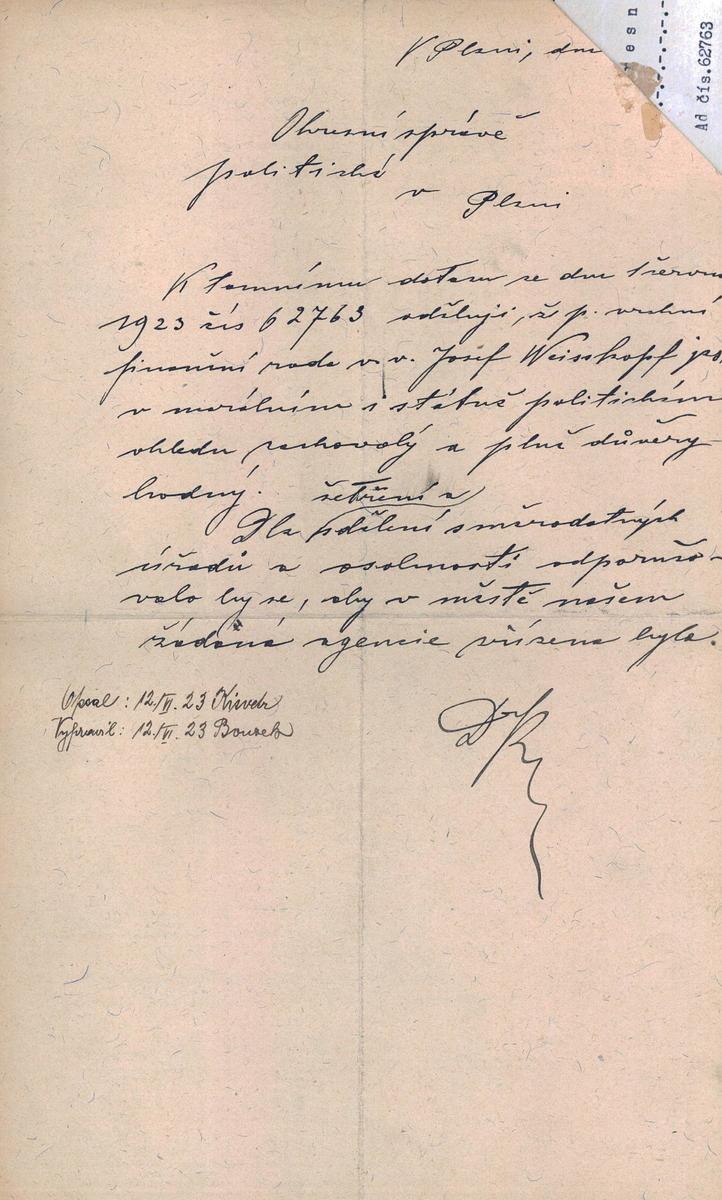 V Plzni, dne
esn
Ad čís. 62763
Okresní správě
politické
v Plzni
K tamnímu dotazu ze dne 1 června
1923 čís 62763 sděluji, že p. vrchní
finanční rada v. v. Josef Weisskopf jes
v morálním i státně politickém
ohledu zachovalý a plně důvěry-
hodný.
šetření a
Dle sdělení směrodatných
úřadů a osobností odporučo-
valo by se, aby v městě našem
žádaná agencie zřízena byla.
Opsal: 12./VI. 23
Vypravil: 12./VI. 23 Bouzek